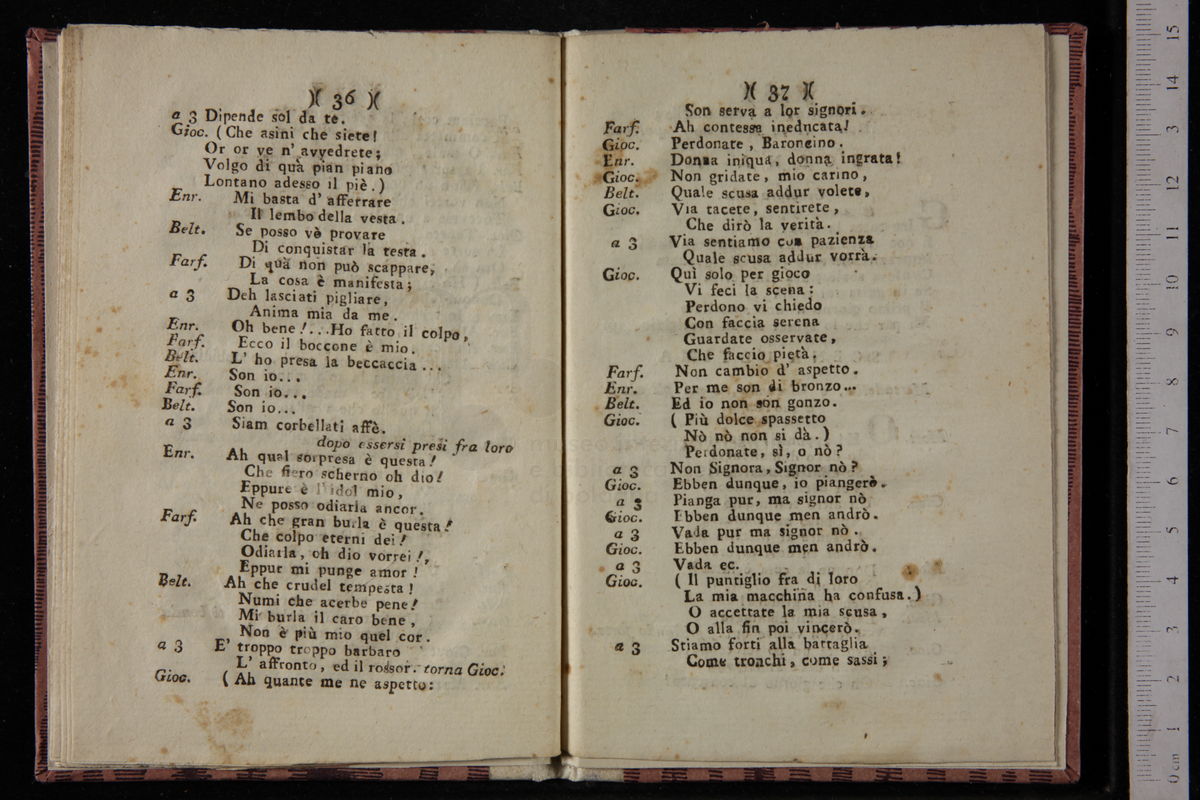 )( 36 )(
a 3 Dipende sol da te.
Gioc. (Che asini che siete!
Or or ve n' avvedrete;
Volgo di quà pian piano
Lontano adesso il piè.)
Enr. Mi basta d' afferrare
Il lembo della vesta.
Belt. Se posso vè provare
Di conquistar la testa.
Farf. Di quà non può scappare,
La cosa è manifesta;
a 3 Deh lasciati pigliare,
Anima mia da me.
Enr. Oh bene!...Ho fatto il colpo,
Farf. Ecco il boccone è mio.
Belt. L' ho presa la beccaccia...
Enr. Son io...
Farf. Son io...
Belt. Son io...
a 3 Siam corbellati affè.
dopo essersi presi fra loro
Enr. Ah qual sorpresa è questa!
Che fiero scherno oh dio!
Eppure è l' idol mio,
Ne posso odiarla ancor.
Farf. Ah che gran burla è questa!
Che colpo eterni dei!
Odiarla, oh dio vorrei!,
Eppur mi punge amor!
Belt. Ah che crudel tempesta!
Numi che acerbe pene!
Mi burla il caro bene,
Non è più mio quel cor.
a 3 E' troppo troppo barbaro
L' affronto, ed il rossor. torna Gioc.
Gioc. (Ah quante me ne aspetto:
)( 37 )(
Son serva a lor signori.
Farf. Ah contessa ineducata!
Gioc. Perdonate, Baroncino.
Enr. Donna iniqua, donna ingrata!
Gioc. Non gridate, mio carino,
Belt. Quale scusa addur volete,
Gioc. Via tacete, sentirete,
Che dirò la verità.
a 3 Via sentiamo con pazienza
Quale scusa addur vorrà.
Gioc. Quì solo per gioco
Vi feci la scena:
Perdono vi chiedo
Con faccia serena
Guardate osservate,
Che faccio pietà.
Farf. Non cambio d' aspetto.
Enr. Per me son di bronzo...
Belt. Ed io non son gonzo.
Gioc. ( Più dolce spassetto
Nò nò non si dà.)
Perdonate, sì, o nò?
a 3 Non Signora, Signor nò?
Gioc. Ebben dunque, io piangerò.
a 3 Pianga pur, ma signor nò
Gioc. Ebben dunque men andrò.
a 3 Vada pur ma signor nò.
Gioc. Ebben dunque men andrò.
a 3 Vada ec.
Gioc. ( Il puntiglio fra di loro
La mia macchina ha confusa.)
O accettate la mia scusa,
O alla fin poi vincerò.
a 3 Stiamo forti alla battaglia
Come tronchi, come sassi;